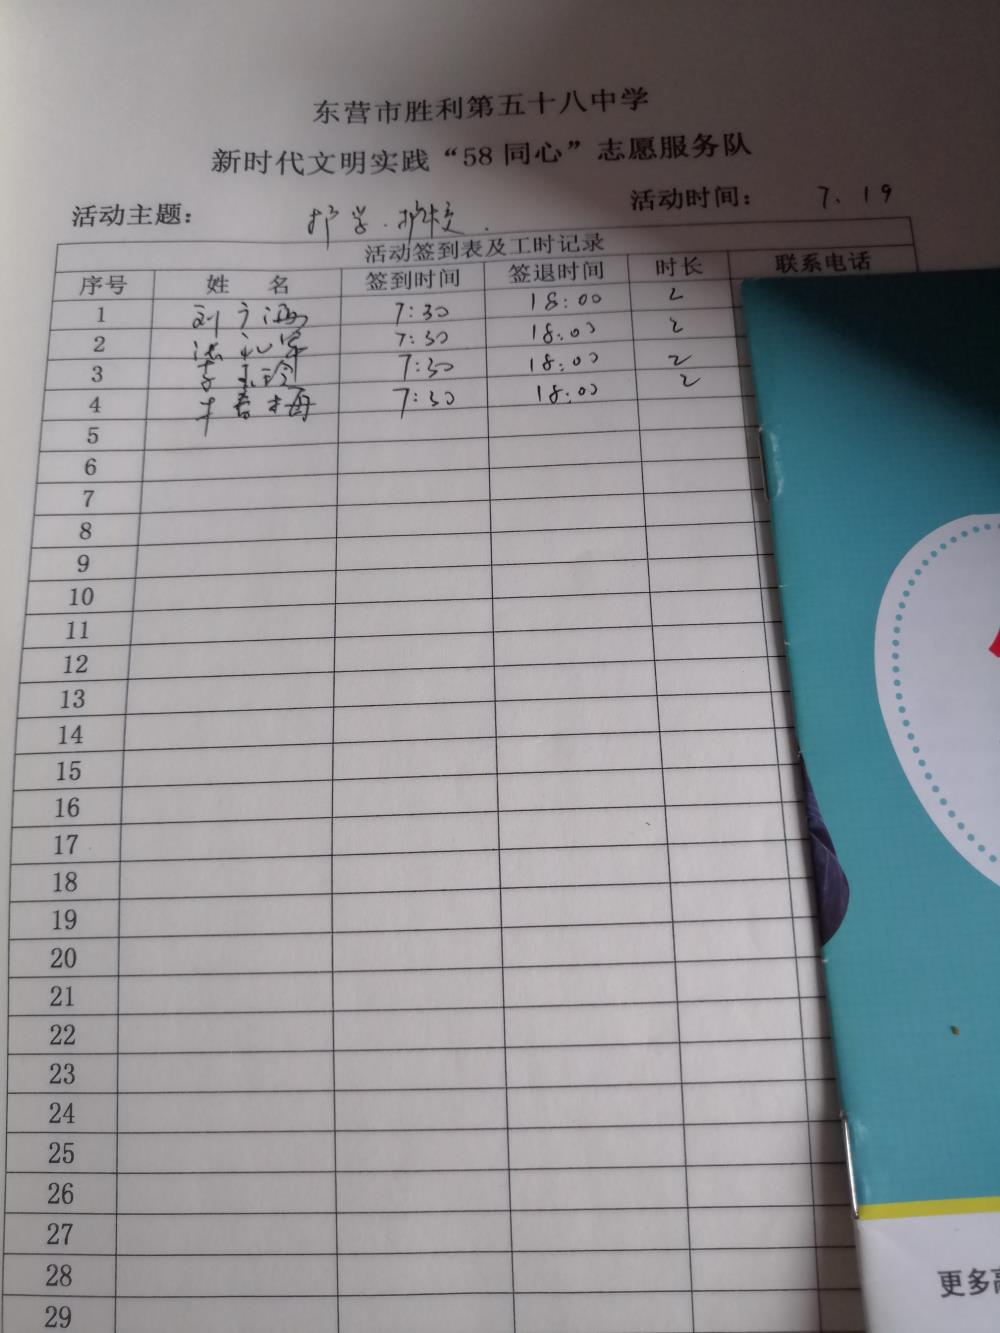 东营市胜利第五十八中学
新时代文明实践“58同心”志愿服务队
活动主题： 护学.护校. 活动时间： 7.19
活动签到表及工时记录
序号 姓 名 签到时间 签退时间 时长 联系电话
1 刘 7:30 18:00 2
2 7:30 18:00 2
3 李玉玲 7:30 18:00 2
4 牛春梅 7:30 18:00 2
5
6
7
8
9
10
11
12
13
14
15
16
17
18
19
20
21
22
23
24
25
26
27
28
29
更多